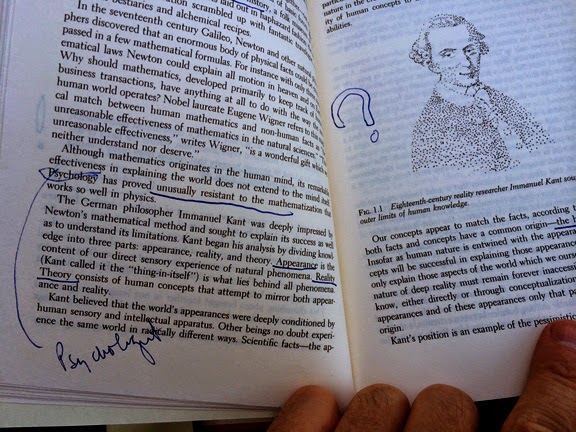 laid out
history, a folk
bestiaries and alchemical recipes.
In the seventeenth century Galileo, Newton and other natural
phers discovered that an enormous body of physical facts could
passed in a few mathematical formulas. For instance with only
ematical laws Newton could explain all motion in heaven and
Why should mathematics, developed primarily to keep track of
business transactions, have anything at all to do with the way the
human world operates? Nobel laureate Eugene Wigner refers to
cal match between human mathematics and non-human facts as
unreasonable effectiveness of mathematics in the natural sciences.
unreasonable effectiveness," writes Wigner, "is a wonderful gift
neither understand nor deserve."
Although mathematics originates in the human mind, its remarkable
effectiveness in explaining the world does not extend to the mind itself.
Psychology has proved unusually resistant to the mathematization that
works so well in physics.
The German philosopher Immanuel Kant was deeply impressed by
Newton's mathematical method and sought to explain its success as well
as to understand its limitations. Kant began his analysis by dividing knowl-
edge into three parts: appearance, reality, and theory. Appearance is the
content of our direct sensory experience of natural phenomena. Reality
(Kant called it the "thing-in-itself") is what lies behind all phenomena.
Theory consists of human concepts that attempt to mirror both appear-
ance and reality.
Kant believed that the world's appearances were deeply conditioned by
human sensory and intellectual apparatus. Other beings no doubt experi-
ence the same world in radically different ways. Scientific facts—the ap-
Psychologist
nature in the
ity of human concepts to
abilities.
?
FIG. 1.1 Eighteenth-century reality researcher Immanuel Kant sou
outer limits of human knowledge.
Our concepts appear to match the facts, according to
both facts and concepts have a common origin—the
Insofar as human nature is entwined with the
cepts will be successful in explaining those appearances
only explain those aspects of the world which we ourse
nature of deep reality must remain forever inaccess
know, either directly or through conceptualization
appearances and of these appearances only that pa
origin.
Kant's position is an example of the pessimistic